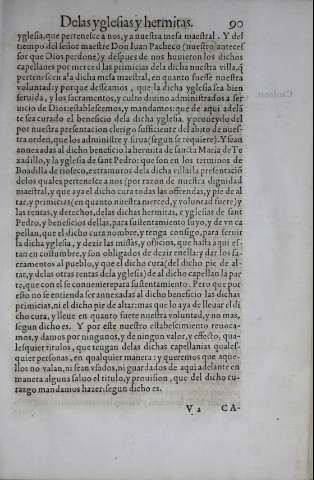 De las yglesias y hermitas. 90
yglesia, que pertenesce a nos, y a nuestra mesa maestral. Y del
tiempo del señor maestre Don Iuan Pacheco (nuestro antecef
sor que Dios perdone) y despues de nos huuieron los dichos
capellanes por merced las primicias dela dicha nuestra villa, q̃
pertenescen ala dicha mesa maestral, en quanto fuesse nuestra
voluntad: y porque desseamos, que la dicha yglesia sea bien
seruida, y los sacramentos, y culto diuino administrados a ser
uicio de Dios: establescemos, y mandamos: que de aqui adelã
te sea curado el beneficio dela dicha yglesia, y proueydo del
por nuestra presentacion clerigo sufficiente del abito de nues-
tra orden, que los administre y sirua (segun se requiere). Y sean
annexadas al dicho beneficio la hermita de sancta Maria de Te
xadillo, y la yglesia de sant Pedro: que son en los terminos de
Boadilla de rioseco, extramuros dela dicha villa: la presentaciõ
delos quales pertenesce a nos (por razon de nuestra dignidad
maestral, y que aya el dicho cura todas las offrendas, y pie de al
tar, y primicias (en quanto nuestra merced, y voluntad fuere) y
las rentas, y derechos, delas dichas hermitas, e yglesias de sant
Pedro, y beneficios dellas, para sustentamiento suyo, y de vn ca
pellan, que el dicho cura nombre, y tenga consigo, para seruir
la dicha yglesia, y dezir las missas, y oficios, que hasta aqui es-
tan en costumbre, y son obligados de dezir en ella: y dar los sa-
cramentos al pueblo, y que el dicho cura (del dicho pie de al-
tar, y delas otras rentas dela yglesia) de al dicho capellan la par
te, que con el se conueniere para sustentamiento. Pero que por
esto no se entienda ser annexadas al dicho beneficio las dichas
primicias, ni el dicho pie de altar: mas que lo aya de lleuar el di
cho cura, y lleue en quanto fuere nuestra voluntad, y no mas,
segun dicho es. Y por este nuestro establescimiento reuoca-
mos, y damos por ningunos, y de ningun valor, y effecto, qua-
lesquier titulos, que tengan delas dichas capellanias quales-
quier personas, en qualquier manera: y queremos que aque-
llos no valan, ni sean vsados, ni guardados de aqui adelante en
manera alguna saluo el titulo, y prouision, que del dicho cu-
razgo mandamos hazer: segun dicho es.
V 2 CA-